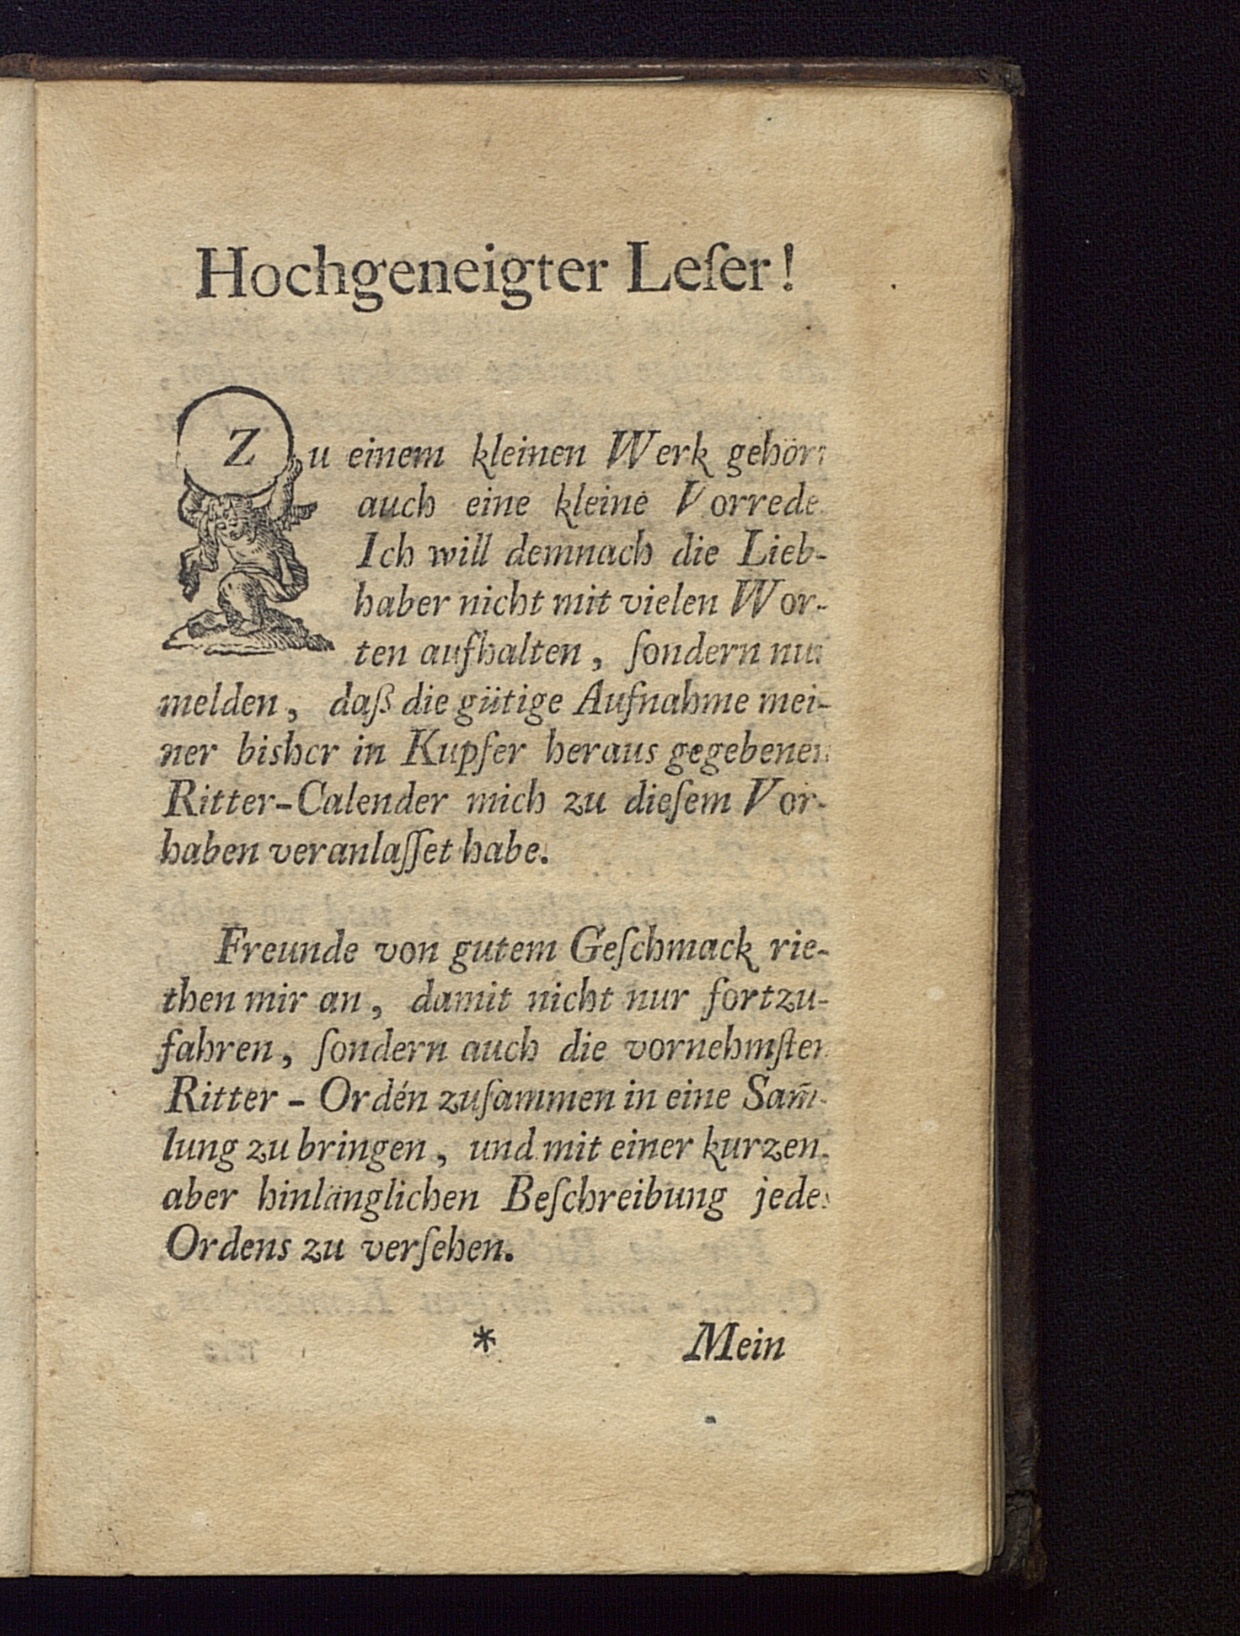 Hochgeneigter Leſer!
Zu einem kleinen Werk gehört
auch eine kleine Vorrede
Ich will demnach die Lieb-
haber nicht mit vielen Wor-
ten aufhalten, ſondern nur
melden, daß die gütige Aufnahme mei-
ner bisher in Kupfer heraus gegebenen
Ritter-Calender mich zu dieſem Vor-
haben veranlaſſet habe.
Freunde von gutem Geſchmack rie-
then mir an, damit nicht nur fortzu-
fahren, ſondern auch die vornehmſten
Ritter - Ordén zuſammen in eine Sam̃-
lung zu bringen, und mit einer kurzen,
aber hinlänglichen Beſchreibung jedes
Ordens zu verſehen.
* Mein